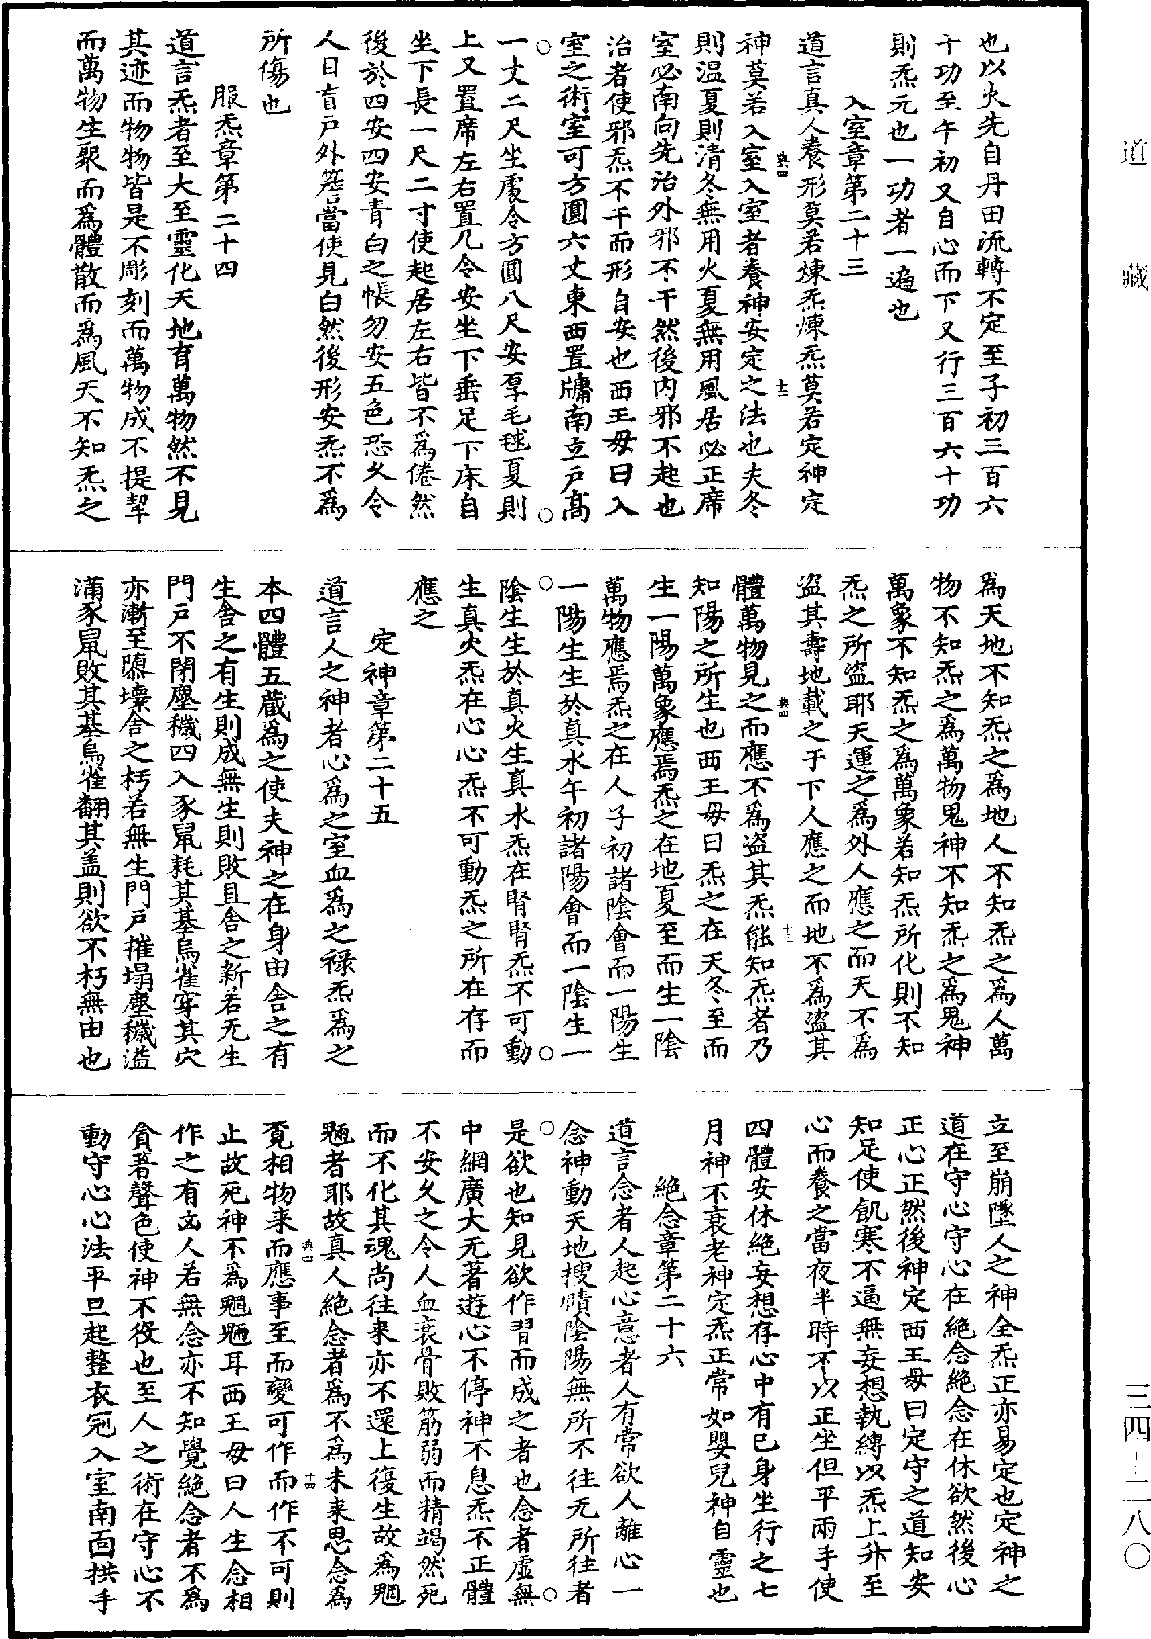 道藏
三四-二八〇
也以火先自丹田流轉不定至子初三百六
十功至午初又自心而下又行三百六十功
則炁元也一功者一遍也
入室章第二十三
道言真人養形莫若煉炁煉炁莫若定神定
神莫若入室入室者養神安定之法也夫冬
則温夏則清冬無用火夏無用風居必正席
室必南向先治外邪不干然後内邪不起也
治者使邪炁不干而形自安也西王母曰入
室之術室可方圓六丈東西置牖南立戶高
一丈二尺坐處令方圓八尺安厚毛毬夏則
上又置席左右置几令安坐下垂足下床自
坐下長一尺二寸使起居左右皆不為倦然
後於四安四安青白之帳勿安五色恐久令
人目盲戶外簷當使見白然後形安炁不為
所傷也
服炁章第二十四
道言炁者至大至靈化天地育萬物然不見
其迹而物物皆是不彫刻而萬物成不提挈
而萬物生聚而為體散而為風天不知炁之
為天地不知炁之為地人不知炁之為人萬
物不知炁之為萬物鬼神不知炁之為鬼神
萬象不知炁之為萬象若知炁所化則不知
炁之所盗耶天運之為外人應之而天不為
盗其壽地載之于下人應之而地不為盗其
體萬物見之而應不為盗其炁能知炁者乃
知陽之所生也西王母曰炁之在天冬至而
生一陽萬象應焉炁之在地夏至而生一陰
萬物應焉炁之在人子初諸陰會而一陽生
一陽生生於真水午初諸陽會而一陰生一
陰生生於真火生真水炁在腎腎炁不可動
生真火炁在心心炁不可動炁之所在存而
應之
定神章第二十五
道言人之神者心為之室血為之祿炁為之
本四體五藏為之使夫神之在身由舍之有
生舍之有生則成無生則敗且舍之新若无生
門戶不閉塵穢四入豕鼠耗其基烏雀穿其穴
亦漸至隳壞舍之朽若無生門戶摧塌塵穢溢
滿豕鼠敗其基烏雀翻其盖則欲不朽無由也
立至崩墜人之神全炁正亦易定也定神之
道在守心守心在絶念絶念在休欲然後心
正心正然後神定西王母曰定守之道知安
知足使飢寒不逼無妄想執縛以炁上升至
心而養之當夜半時不以正坐但平兩手使
四體安休絶妄想存心中有已身坐行之七
月神不衰老神定炁正常如嬰兒神自靈也
絶念章第二十六
道言念者人起心意者人有常欲人離心一
念神動天地搜賾陰陽無所不往无所往者
是欲也知見欲作習而成之者也念者虛無
中網廣大无著遊心不停神不息炁不正體
不安久之令人血衰骨敗筋弱而精竭然死
而不化其魂尚往來亦不還上復生故為魍
魎者耶故真人絶念者為不為未來思念為
覔相物来而應事至而變可作而作不可則
止故死神不為魍魎耳西王母曰人生念相
作之有凶人若無念亦不知覺絶念者不為
貪著聲色使神不役也至人之術在守心不
動守心心法平旦起整衣冠入室南面拱手